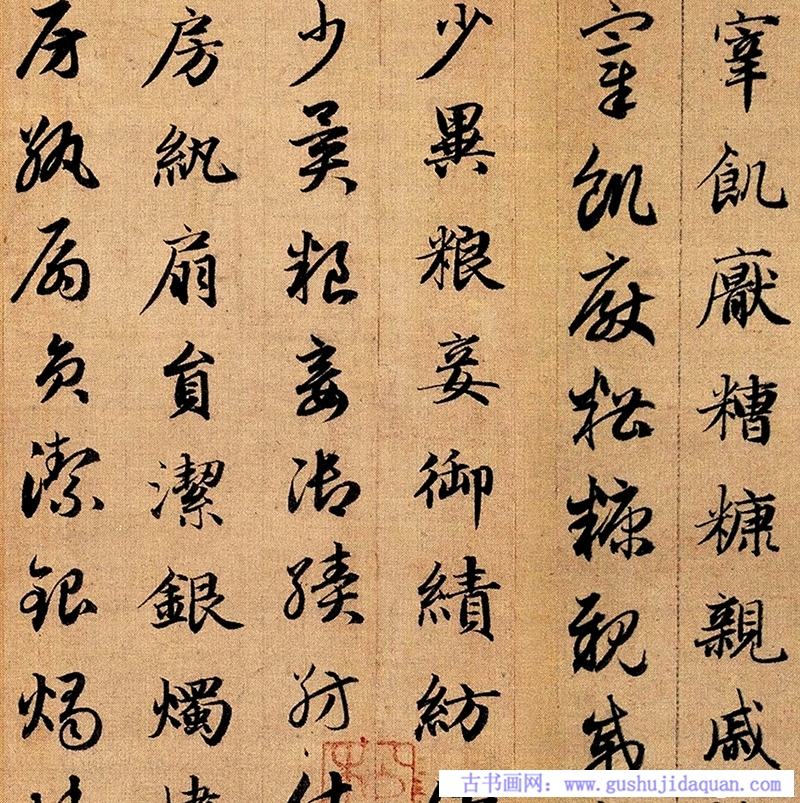 宰飢厭糟糠親戚
宰飢厭糟糠親戚
少異粮妾御績紡
少異粮妾御績紡
房紈扇員潔銀燭
房紈扇員潔銀燭
古书画网：www.gushujidaquan.com